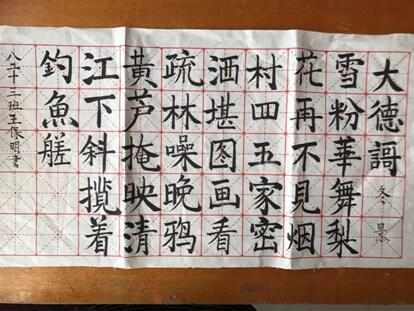 大德謌 冬景
雪粉華舞梨
花再不見烟
村四五家密
洒堪图画看
疏林噪晚鸦
黄芦掩映清
江下斜揽着
釣魚艖
八二十二班王保明書